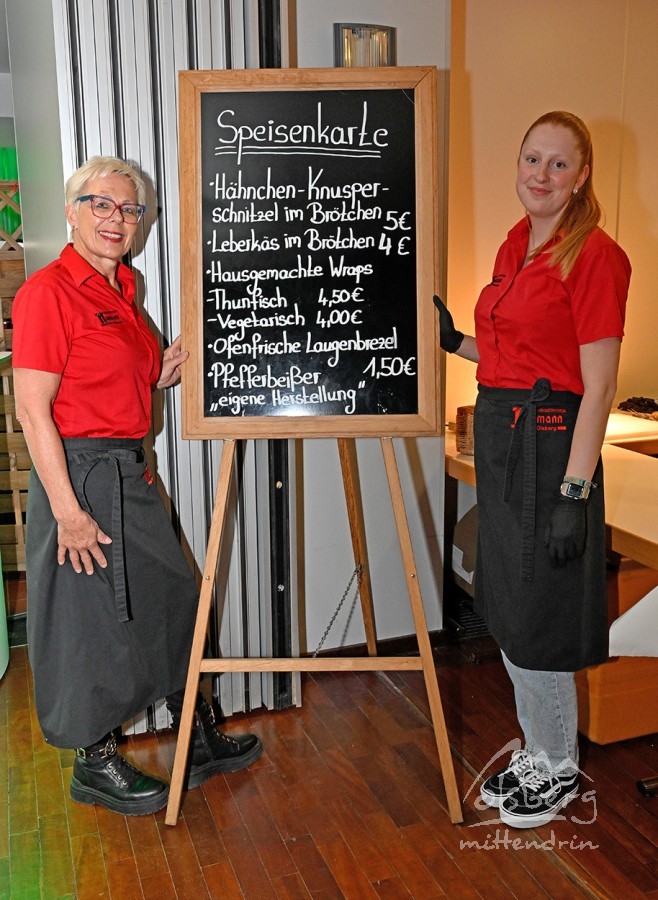 Speisenkarte
·Hähnchen-Knusper-
schnitzel im Brötchen 5€
·Leberkäs im Brötchen 4€
·Hausgemachte Wraps
-Thunfisch 4,50€
-Vegetarisch 4,00€
·Ofenfrische Laugenbrezel
1,50€
·Pfefferbeißer
„eigene Herstellung"
mann
Olsberg
olsberg
mittendrin